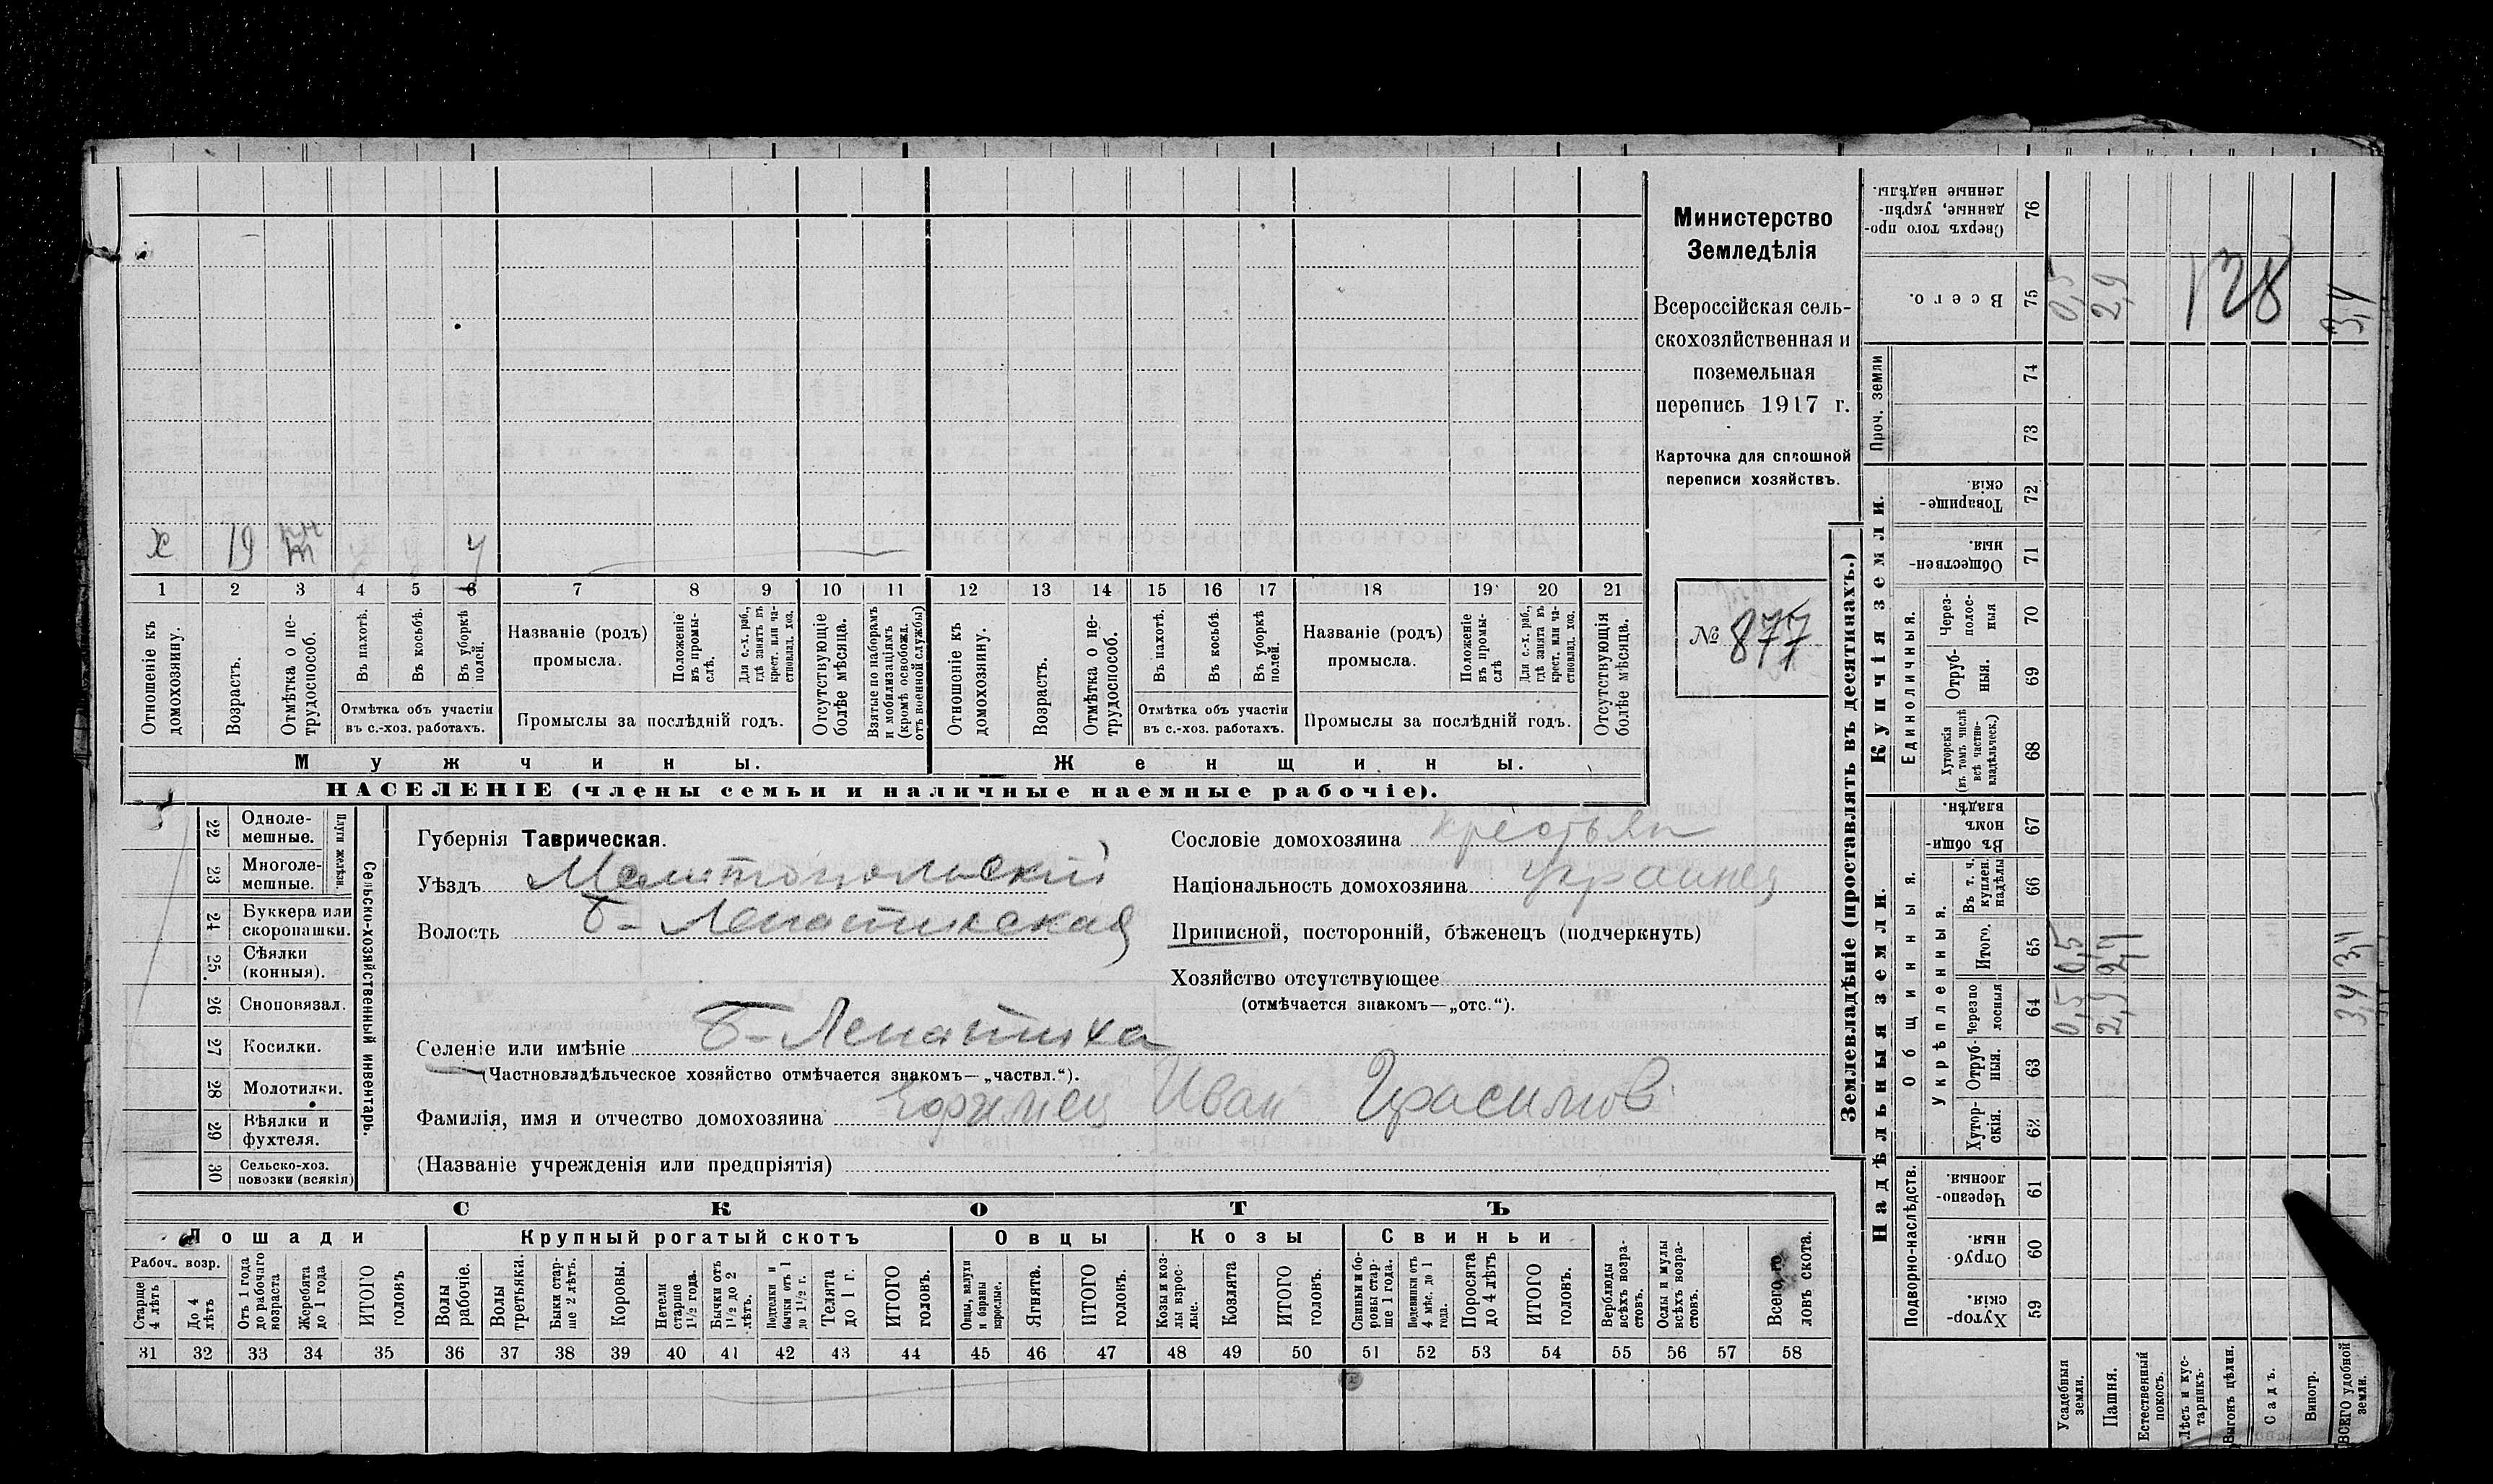 Министерство
Земледѣлія
Всероссійская сель-
скохозяйственная и
поземельная
перепись 1917 г.
Карточка для сплошной
переписи хозяйствъ.
№ 877
х 19
1 2 3 4 5 6 7 8 9 10 11 12 13 14 15 16 17 18 19 20 21
Отношеніе къ домохозяину.
Возрастъ.
Отмѣтка о не-трудоспособ.
Въ пахотѣ.
Въ косьбѣ.
Въ уборкѣ полей.
Отмѣтка объ участіи
въ с.-хоз. работахъ.
Названіе (родъ)
промысла.
Положеніе въ промы-слѣ.
Для с.-х. раб., гдѣ занятъ въ крест. или ча-стновлад. хоз.
Промыслы за послѣдній годъ.
Отсутствующіе болѣе мѣсяца.
Взятые по наборамъ и мобилизаціямъ (кромѣ освобожд. отъ военной службы)
Отношеніе къ домохозяину.
Возрастъ.
Отмѣтка о не-трудоспособ.
Въ пахотѣ.
Въ косьбѣ.
Въ уборкѣ полей.
Отмѣтка объ участіи
въ с.-хоз. работахъ.
Названіе (родъ)
промысла.
Положеніе въ промы-слѣ
Для с.-х. раб., гдѣ занята въ крест. или ча-стновлад. хоз.
Промыслы за послѣдній годъ.
Отсутствующія болѣе мѣсяца.
Мужчины.
Женщины.
НАСЕЛЕНІЕ (члены семьи и наличные наемные рабочіе).
22 Одноле-мешные.
23 Многоле-мешные.
Плуги желѣзн.
24 Буккера или скоропашки.
25. Сѣялки (конныя).
26 Сноповязал.
27 Косилки.
28 Молотилки.
29 Вѣялки и фухтеля.
30 Сельско-хоз. повозки (всякія)
Сельско-хозяйственный инвентарь.
Губернія Таврическая.
Уѣздъ Мелитопольскій
Волость Б-Лепатихская
Селеніе или имѣніе Б-Лепатиха
(Частновладѣльческое хозяйство отмѣчается знакомъ—„частвл.“).
Фамилія, имя и отчество домохозяина Ефимец Иван Герасимов
(Названіе учрежденія или предпріятія)
Сословіе домохозяина крестьян
Національность домохозяина украинец
Приписной, посторонній, бѣженецъ (подчеркнуть)
Хозяйство отсутствующее
(отмѣчается знакомъ—„отс.“).
СКОТЪ
Лошади
Крупный рогатый скотъ
Овцы
Козы
Свиньи
Рабоч. возр.
Старше 4 лѣтъ
До 4 лѣтъ
Отъ 1 года до рабочаго возраста
Жеребята до 1 года
ИТОГО головъ
Волы рабочіе.
Волы третьяка.
Быки стар-ше 2 лѣтъ.
Коровы.
Нетели старше 1½ года.
Бычки отъ 1½ до 2 лѣтъ.
Подтелки и бычки отъ 1 до 1½ г.
Телята до 1 г.
ИТОГО головъ.
Овцы, валухи и бараны взрослые.
Ягнята.
ИТОГО головъ.
Козы и коз-лы взрос-лые.
Козлята
ИТОГО головъ.
Свиньи и бо-ровы стар-ше 1 года.
Подсвинки отъ 4 мѣс. до 1 года.
Поросята до 4 лѣтъ
ИТОГО головъ.
Верблюды всѣхъ возра-стовъ.
Ослы и мулы всѣхъ возра-стовъ.
Всего го ловъ скота.
31 32 33 34 35 36 37 38 39 40 41 42 43 44 45 46 47 48 49 50 51 52 53 54 55 56 57 58
Землевладѣніе (проставлять въ десятинахъ.)
Надѣльныя земли.
Купчія земли.
Проч. земли
Подворно-наслѣдств.
Общинныя.
Укрѣпленныя.
Единоличныя.
Сверхъ того про-данные, укрѣп-ленные надѣлы. 76
Всего. 75 0,5 2,9 3,4
128
74
73
Товарище-скія. 72
Обществен-ныя. 71
Через-полос-ныя 70
Отруб-ныя. 69
Хуторскія (въ томъ числѣ всѣ частно-владѣльческ.) 68
Въ общи-номъ владѣн. 67
Въ т. ч. куплен. надѣлы 66
Итого. 65 0,5 2,9 3,4
Черезпо лосныя 64 0,5 2,9 3,4
Отруб-ныя. 63
Хутор-скія. 62
Черезпо-лосныя 61
Отруб-ныя. 60
Хутор-скія 59
Усадебныя земли.
Пашня.
Естественный покосъ.
Лѣсъ и кус-тарникъ.
Выгонъ цѣлин.
Садъ.
Виногр.
ВСЕГО удобной земли.